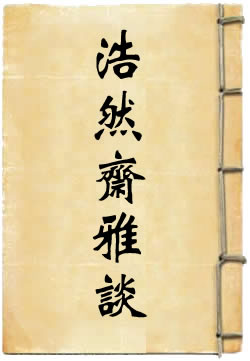 浩然齋雅談